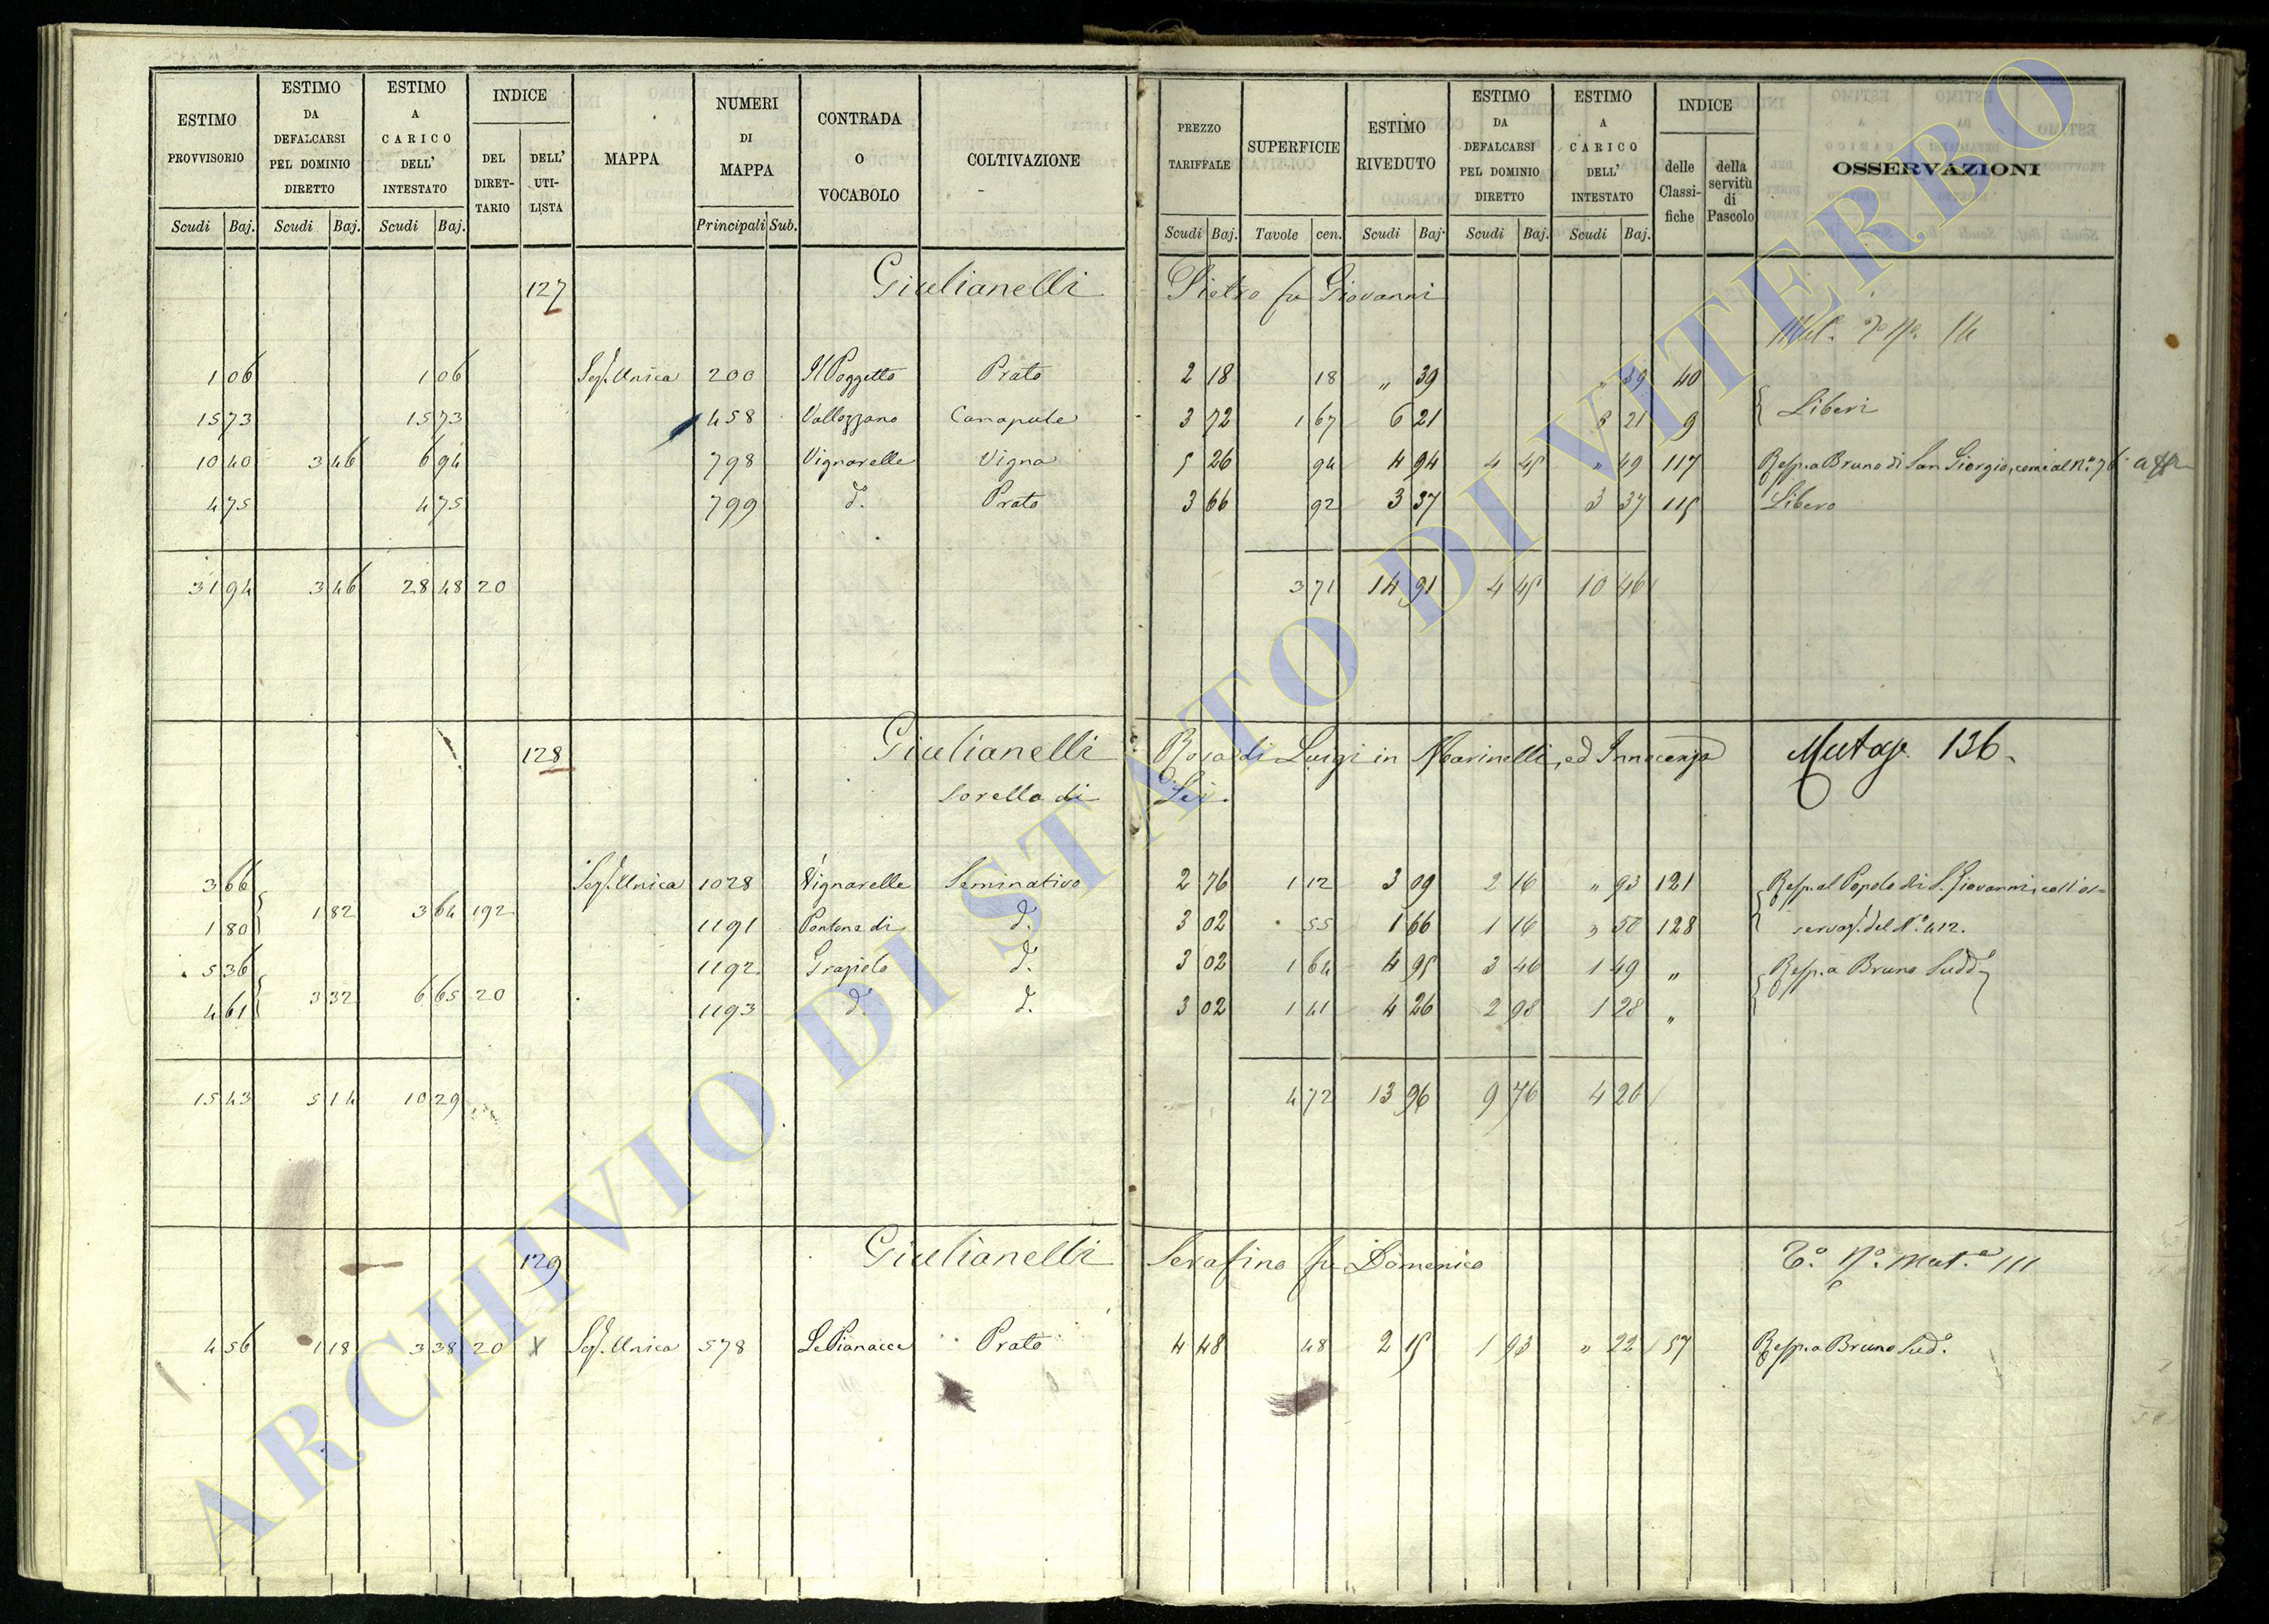 ESTIMO PROVVISORIO | ESTIMO DA DEFALCARSI PEL DOMINIO DIRETTO | ESTIMO A CARICO DELL' INTESTATO | INDICE | MAPPA | NUMERI DI MAPPA | CONTRADA O VOCABOLO | COLTIVAZIONE | PREZZO TARIFFALE | SUPERFICIE | ESTIMO RIVEDUTO | ESTIMO DA DEFALCARSI PEL DOMINIO DIRETTO | ESTIMO A CARICO DELL' INTESTATO | INDICE | OSSERVAZIONI
DEL DIRETTARIO | DELL' UTILISTA | delle Classifiche | della servitù di Pascolo
Scudi Baj. | Scudi Baj. | Scudi Baj. | Principali Sub. | Scudi Baj. | Tavole cen. | Scudi Baj. | Scudi Baj. | Scudi Baj.
127 Giulianelli Pietro fu Giovanni
1 06 | 1 06 | Sez. Unica | 200 | Il Poggetto | Prato | 2 18 | 18 | „ 39 | „ 39 | 40
15 73 | 15 73 | 458 | Vallozzano | Canapule | 3 72 | 1 67 | 6 21 | 6 21 | 9 | Liberi
10 40 | 3 46 | 6 94 | 798 | Vignarelle | Vigna | 5 26 | 94 | 4 94 | 4 45 | „ 49 | 117 | Resp. a Bruno di San Giorgio, come al N.° 76
4 75 | 4 75 | 799 | d.° | Prato | 3 66 | 92 | 3 37 | 3 37 | 115 | Libero
31 94 | 3 46 | 28 48 | 20 | 3 71 | 14 91 | 4 45 | 10 46
128 Giulianelli Rosa di Luigi in Marinelli, ed Innocenza Mutaz. 136.
Sorella di Lei.
3 66 | Sez. Unica | 1028 | Vignarelle | Seminativo | 2 76 | 1 12 | 3 09 | 2 16 | „ 93 | 121 | Resp. al Popolo di S. Giovanni, coll'os=
1 80 | 1 82 | 3 64 | 192 | 1191 | Pontone di | d.° | 3 02 | 55 | 1 66 | 1 16 | „ 50 | 128 | servaz. del N.° 412.
5 36 | 1192 | Grazieto | d.° | 3 02 | 1 64 | 4 95 | 3 46 | 1 49 | „ | Resp. a Bruno Sudd.°
4 61 | 3 32 | 6 65 | 20 | 1193 | d.° | d.° | 3 02 | 1 41 | 4 26 | 2 98 | 1 28 | „
15 43 | 5 14 | 10 29 | 4 72 | 13 96 | 9 76 | 4 20
129 Giulianelli Serafino fu Domenico T.° N.° Mut.ª 111
4 56 | 1 18 | 3 38 | 20 | X | Sez. Unica | 578 | Le Pianacce | Prato | 4 48 | 48 | 2 15 | 1 93 | „ 22 | 57 | Resp. a Bruno Sud.°
ARCHIVIO DI STATO DI VITERBO